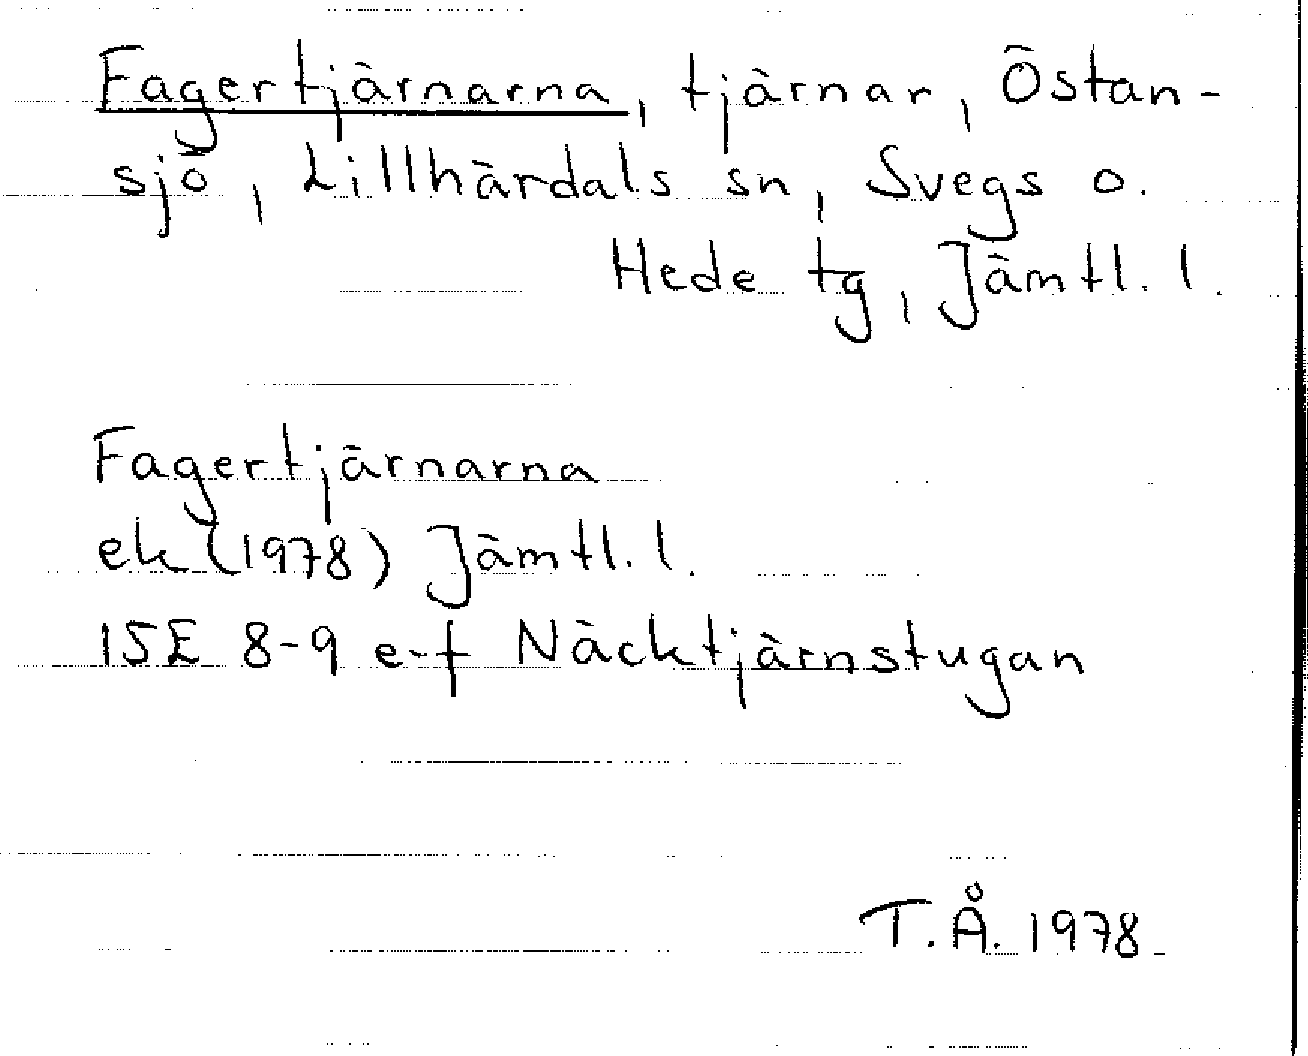 Fagertjärnarna, tjärnar, Östan-
sjö, Lillhärdals sn, Svegs o.
Hede tg, Jämtl. l.
Fagertjärnarna
ek (1978) Jämtl. l.
15E 8-9 e-f Näcktjärnstugan
T.Å. 1978